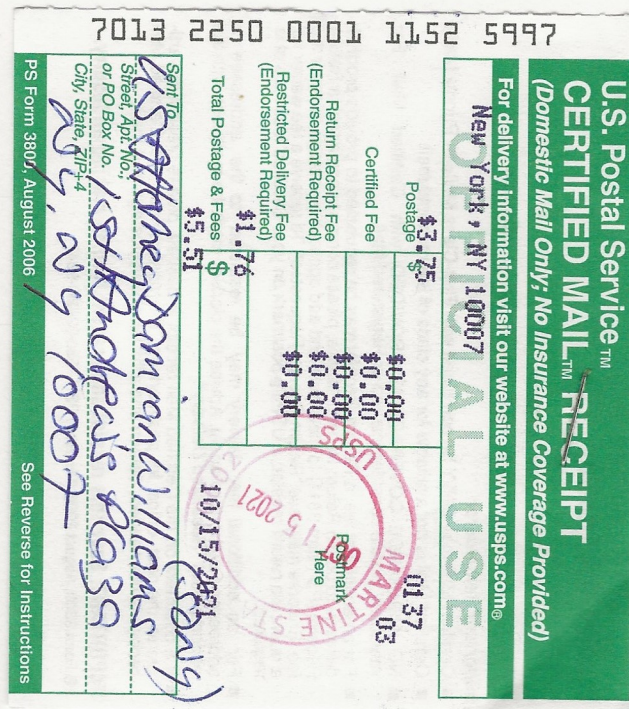 7013 2250 0001 1152 5997
U.S. Postal Service™
CERTIFIED MAIL™ RECEIPT
(Domestic Mail Only; No Insurance Coverage Provided)
For delivery information visit our website at www.usps.com®
OFFICIAL USE
New York, NY 10007
Postage $
$3.75
$0.00
0137
Certified Fee
$0.00
03
Return Receipt Fee
(Endorsement Required)
$0.00
Postmark
Here
Restricted Delivery Fee
(Endorsement Required)
$0.00
$0.00
Total Postage & Fees $
$1.76
$5.51
10/15/2021
MARTINE STA
USPS
OCT 15 2021
Sent To
US Attorney Damian Williams (SDNY)
Street, Apt. No.,
or PO Box No.
1 St Andrew's Plaza
City, State, ZIP+4
NY, NY 10007
PS Form 3800, August 2006
See Reverse for Instructions